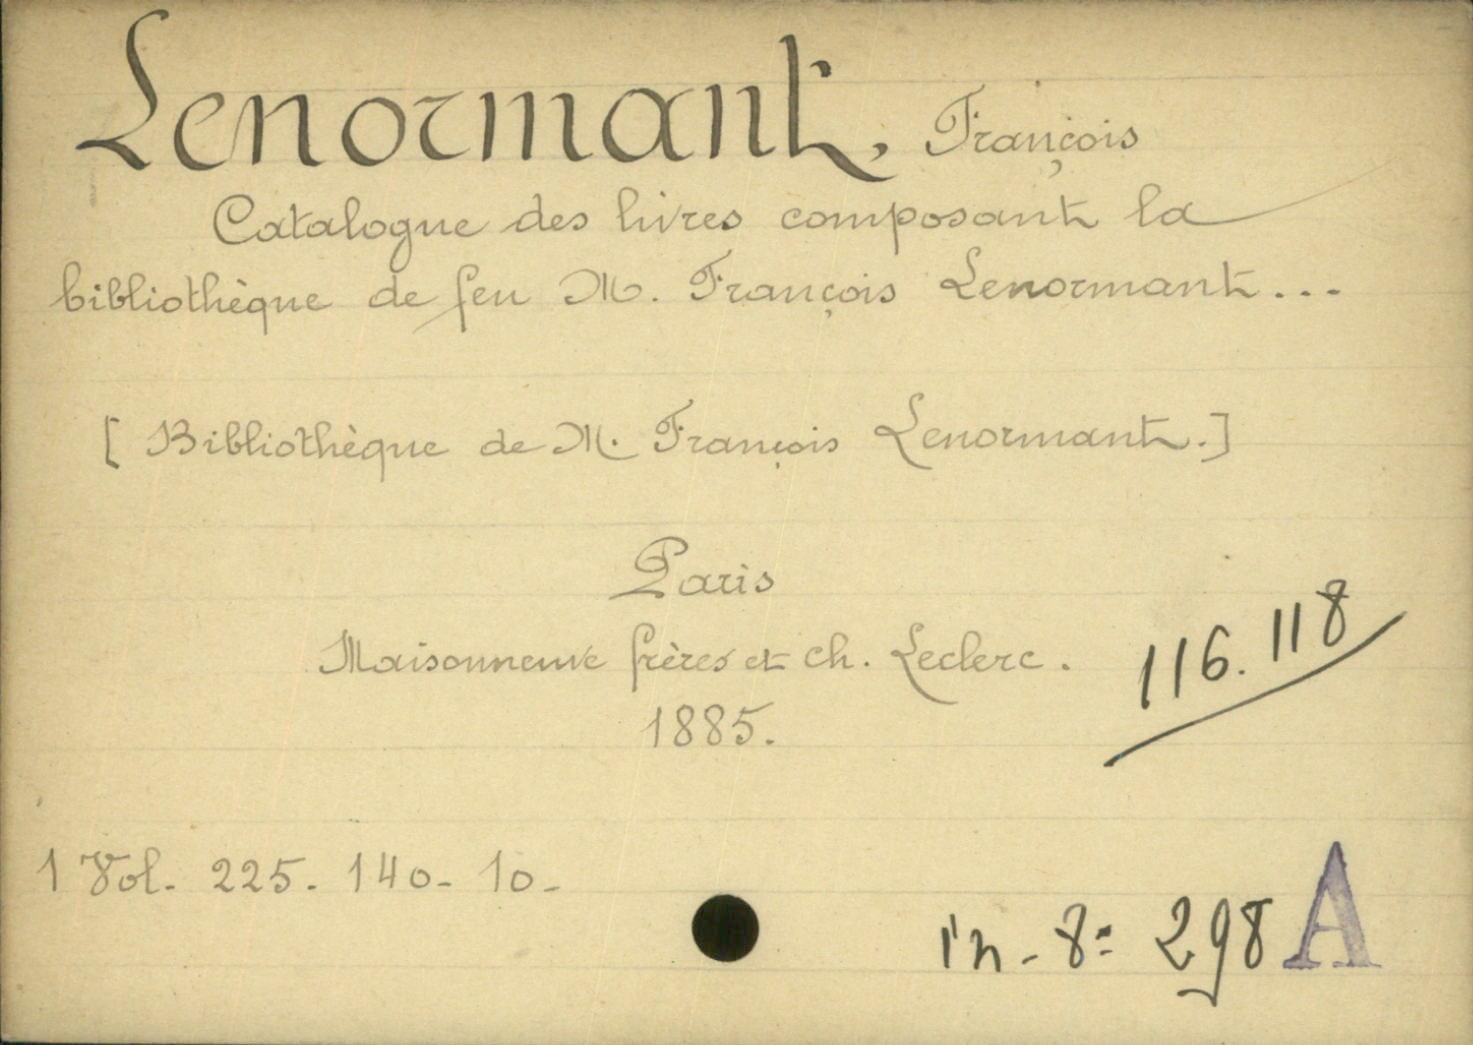 Lenormant, François
Catalogue des livres composant la
bibliothèque de feu M. François Lenormant...
[Bibliothèque de M. François Lenormant.]
Paris
Maisonneuve frères et ch. Leclerc.
1885.
116.118
1 Vol. 225. 140. 10.
in-8º 298 A